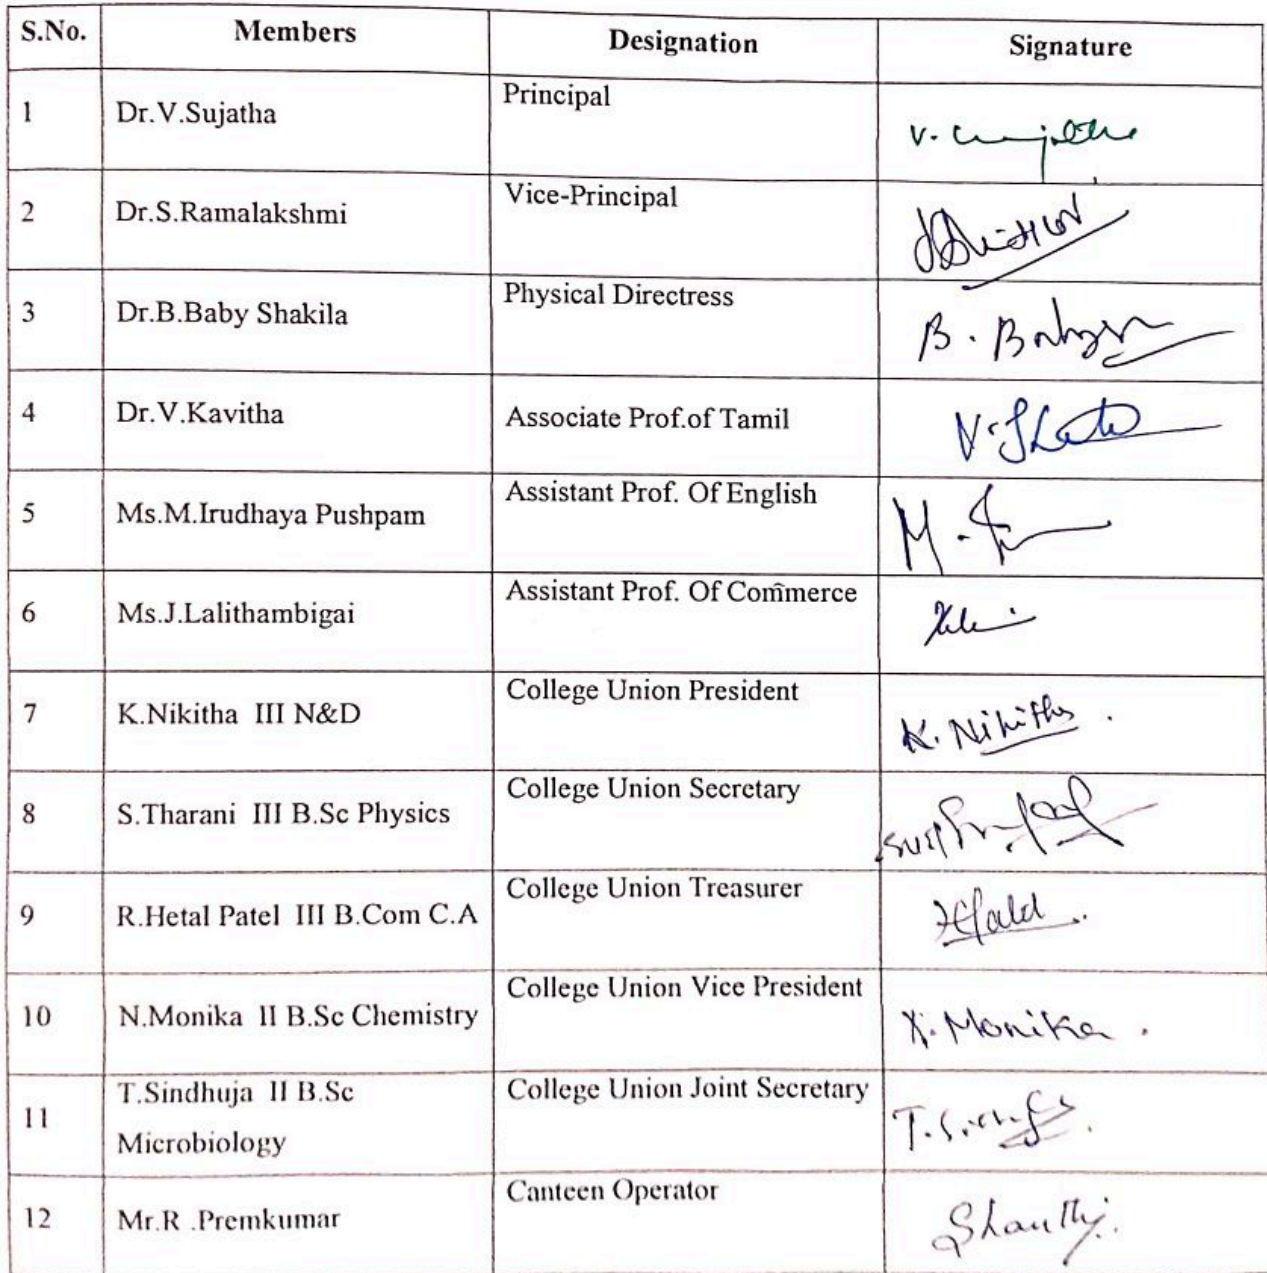 S.No. Members Designation Signature
1 Dr.V.Sujatha Principal
2 Dr.S.Ramalakshmi Vice-Principal
3 Dr.B.Baby Shakila Physical Directress
4 Dr.V.Kavitha Associate Prof.of Tamil
5 Ms.M.Irudhaya Pushpam Assistant Prof. Of English
6 Ms.J.Lalithambigai Assistant Prof. Of Commerce
7 K.Nikitha III N&D College Union President K. Nikitha .
8 S.Tharani III B.Sc Physics College Union Secretary
9 R.Hetal Patel III B.Com C.A College Union Treasurer
10 N.Monika II B.Sc Chemistry College Union Vice President N. Monika .
11 T.Sindhuja II B.Sc College Union Joint Secretary
Microbiology
12 Mr.R .Premkumar Canteen Operator Shanthi.